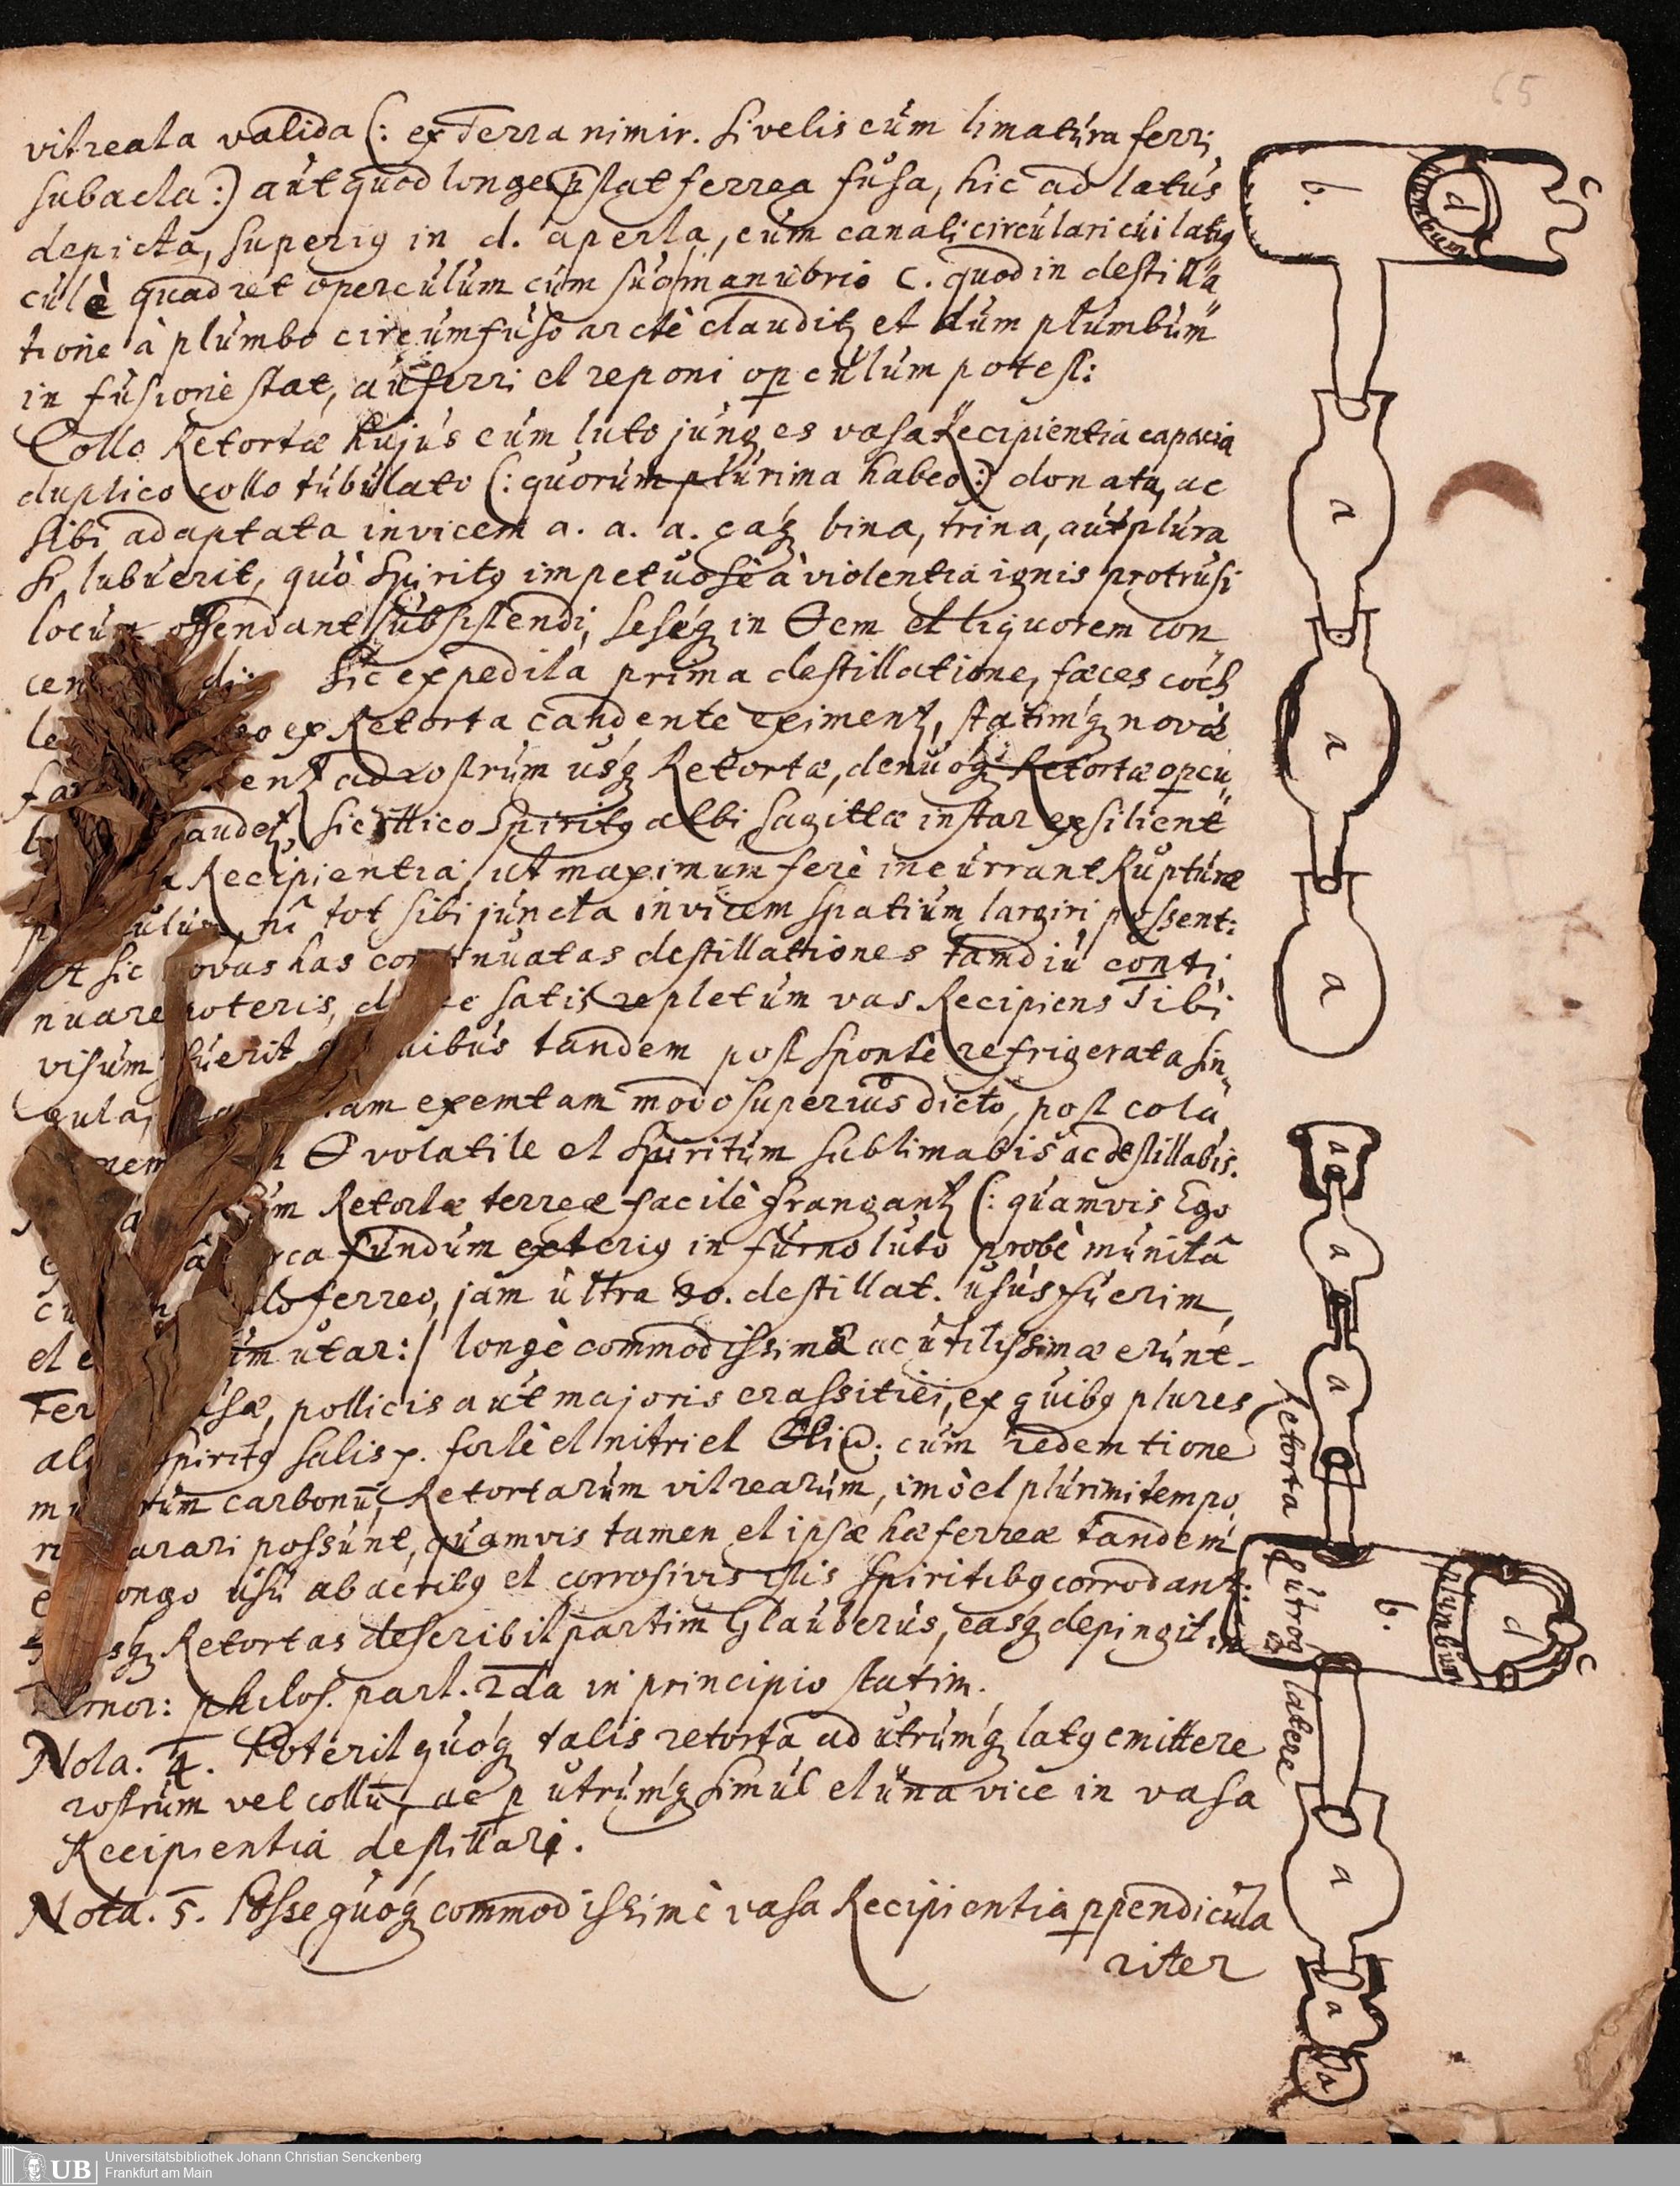 65
vitreata valida (: ex Terra nimir. si velis cum limatura ferri
subacta :) aut quod longe pstat ferrea fusa, hic ad latus
depicta, superi9 in d. aperta, cum canali circulari cui lat9
culè quadret operculum cum suo manubrio c. quod in destilla
tione à plumbo circumfuso arctè claudit et dum plumbum
in fusione stat, auferri et reponi opculum potest:
Collo Retortæ hujus cum luto junges vasa Recipientia capacia
duplico collo tubulato (: quorum plurima habeo :) donata, ac
sibi adaptata invicem a. a. a. eaq bina, trina, aut plura
si lubuerit, quò Spirit9 impetuosè à violentia ignis protrusi
locum offendant subsistendi, seseq in em et liquorem con
cen di: Sic expedita prima destillatione, fæces coch
le eo ex Retorta candente eximent, statimq novæ
ent ad rostrum usq Retortæ, denuoq Retortæ opcu
audet, sic illico Spirit9 albi sagittæ instar exsilient
Recipientia, ut maximum ferè incurrant Rupturæ
ulum, ni tot sibi juncta invicem spatium largiri possent:
Et sic novas has continuatas destillationes tamdiu conti
nuare poteris, satis repletum vas Recipiens Tibi
visum fuerit, quibus tandem post spontè refrigerata sin
gula, exemtam modo superius dicto, post cola
nem volatile et Spiritum sublimabis ac destillabis.
Retortæ terreæ facilè frangant (: quamvis Ego
circa fundum exteri9 in furno luto probè munitâ
ferreo, jam ultra 30. destillat. usus fuerim,
et utar :/ longè commodissimæ ac utilissimæ erunt
Fer usæ, pollicis aut majoris crassitiei, ex quib9 plures
Spirit9 salis p. fortè et nitri et cum redemtione
carbonū, Retortarum vitrearum, imò et plurimi tempo
arari possunt, quamvis tamen et ipsæ hæ ferreæ tandem
longo usu ab acrib9 et corrosivis istis Spiritib9 corrodant:
sq Retortas describit partim Glauberus, easq depingit in
philos. part. 2da in principio statim.
Nota. 4. Poterit quoq talis retorta ad utrumq lat9 emittere
rostrum vel collū, ac p utrumq simul et una vice in vasa
Recipientia destillari.
Nota. 5. Posse quoq commodissimè vasa Recipientia ppendicula
riter
b.
d
plumbum
c
a
a
a
a
a
a
Retorta
b.
plumbum
d
c
utroq
latere
a
a
a
UB
Universitätsbibliothek Johann Christian Senckenberg
Frankfurt am Main